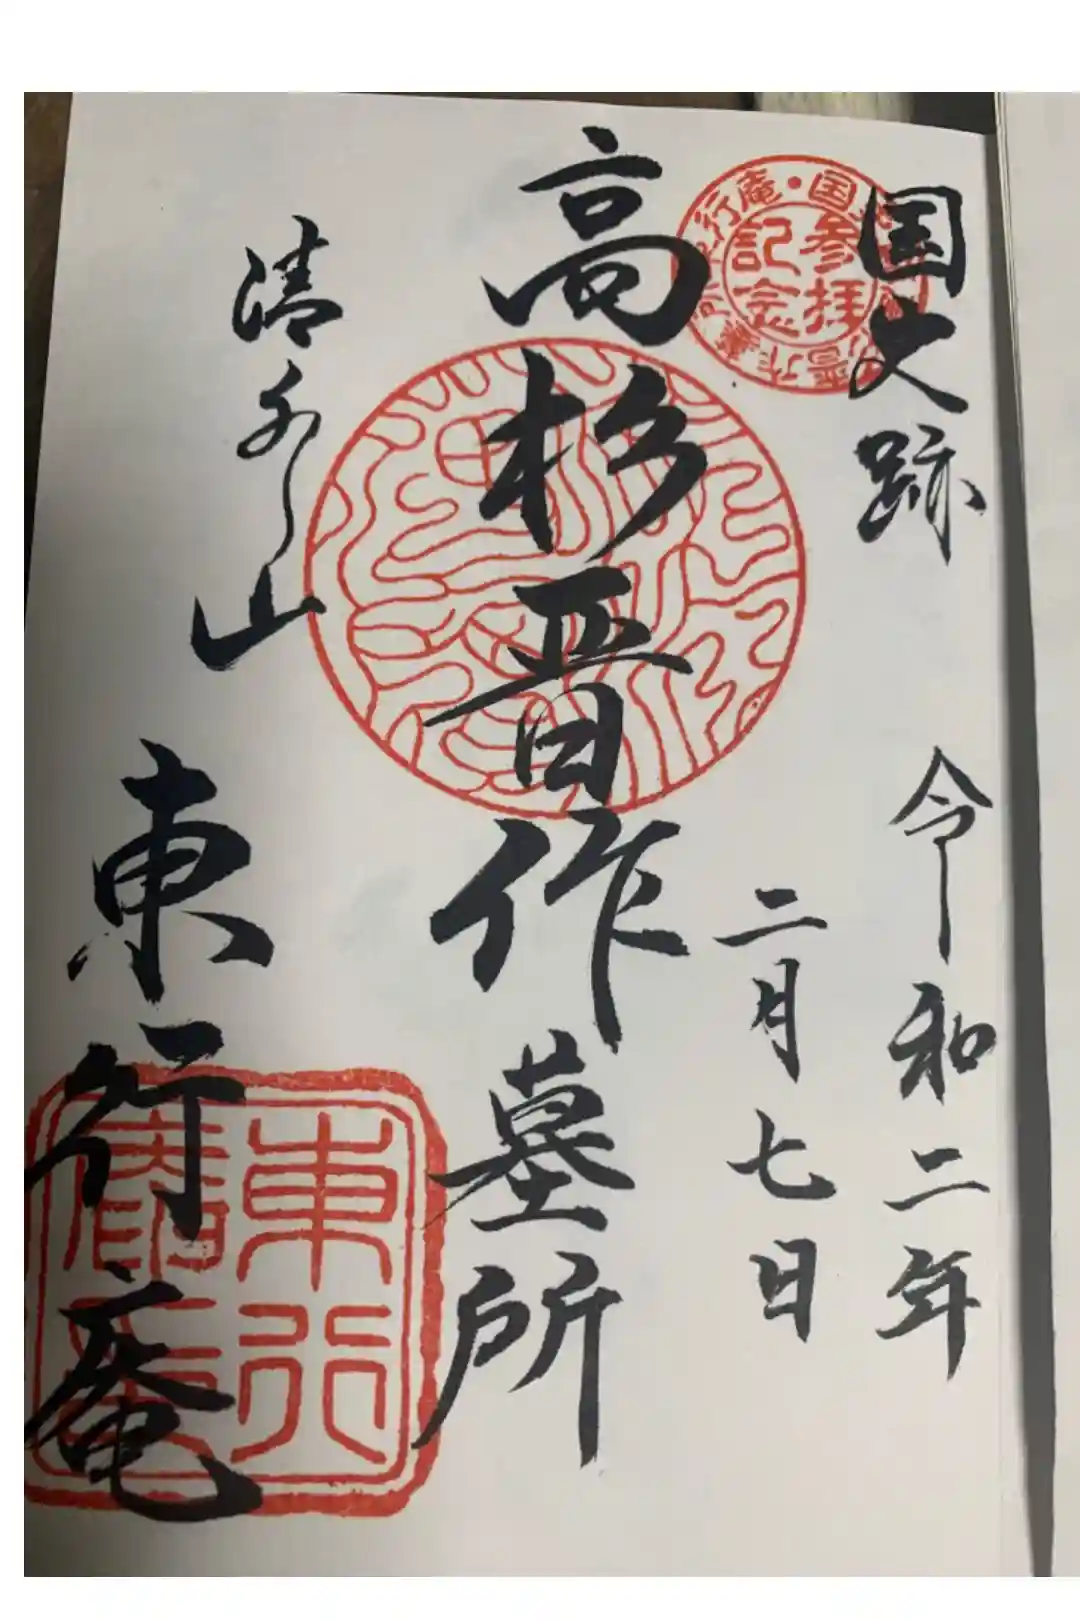 国史跡
令和二年
二月七日
高杉晋作墓所
清水山
東行庵
参拝
記念
東行